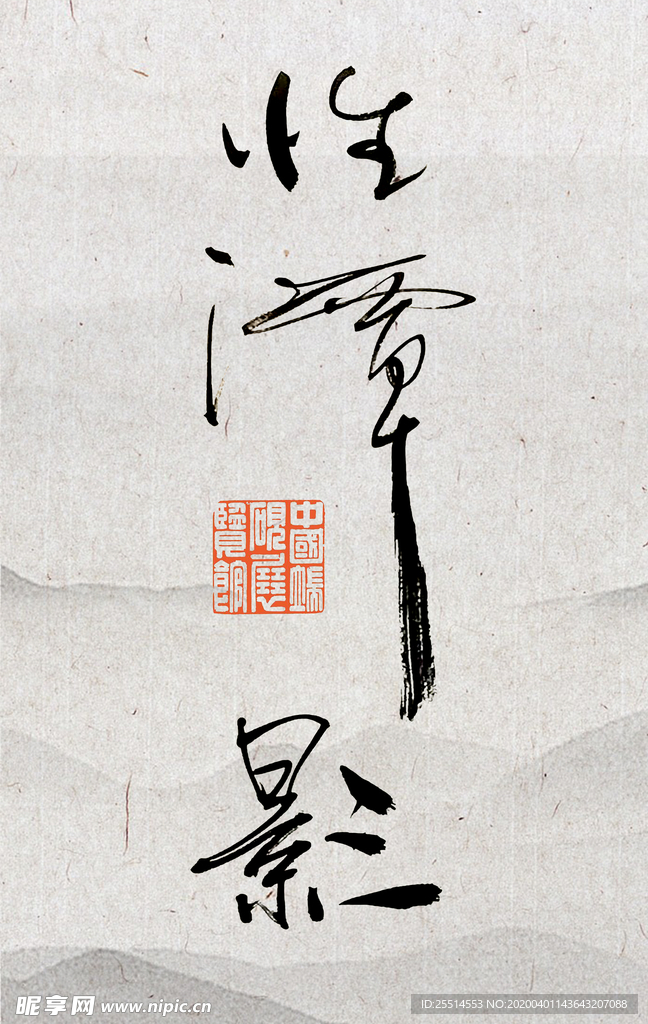 性
潭
影
中國端
硯展
覽館
昵享网 www.nipic.cn
ID:25514553 NO:20200401143643207088